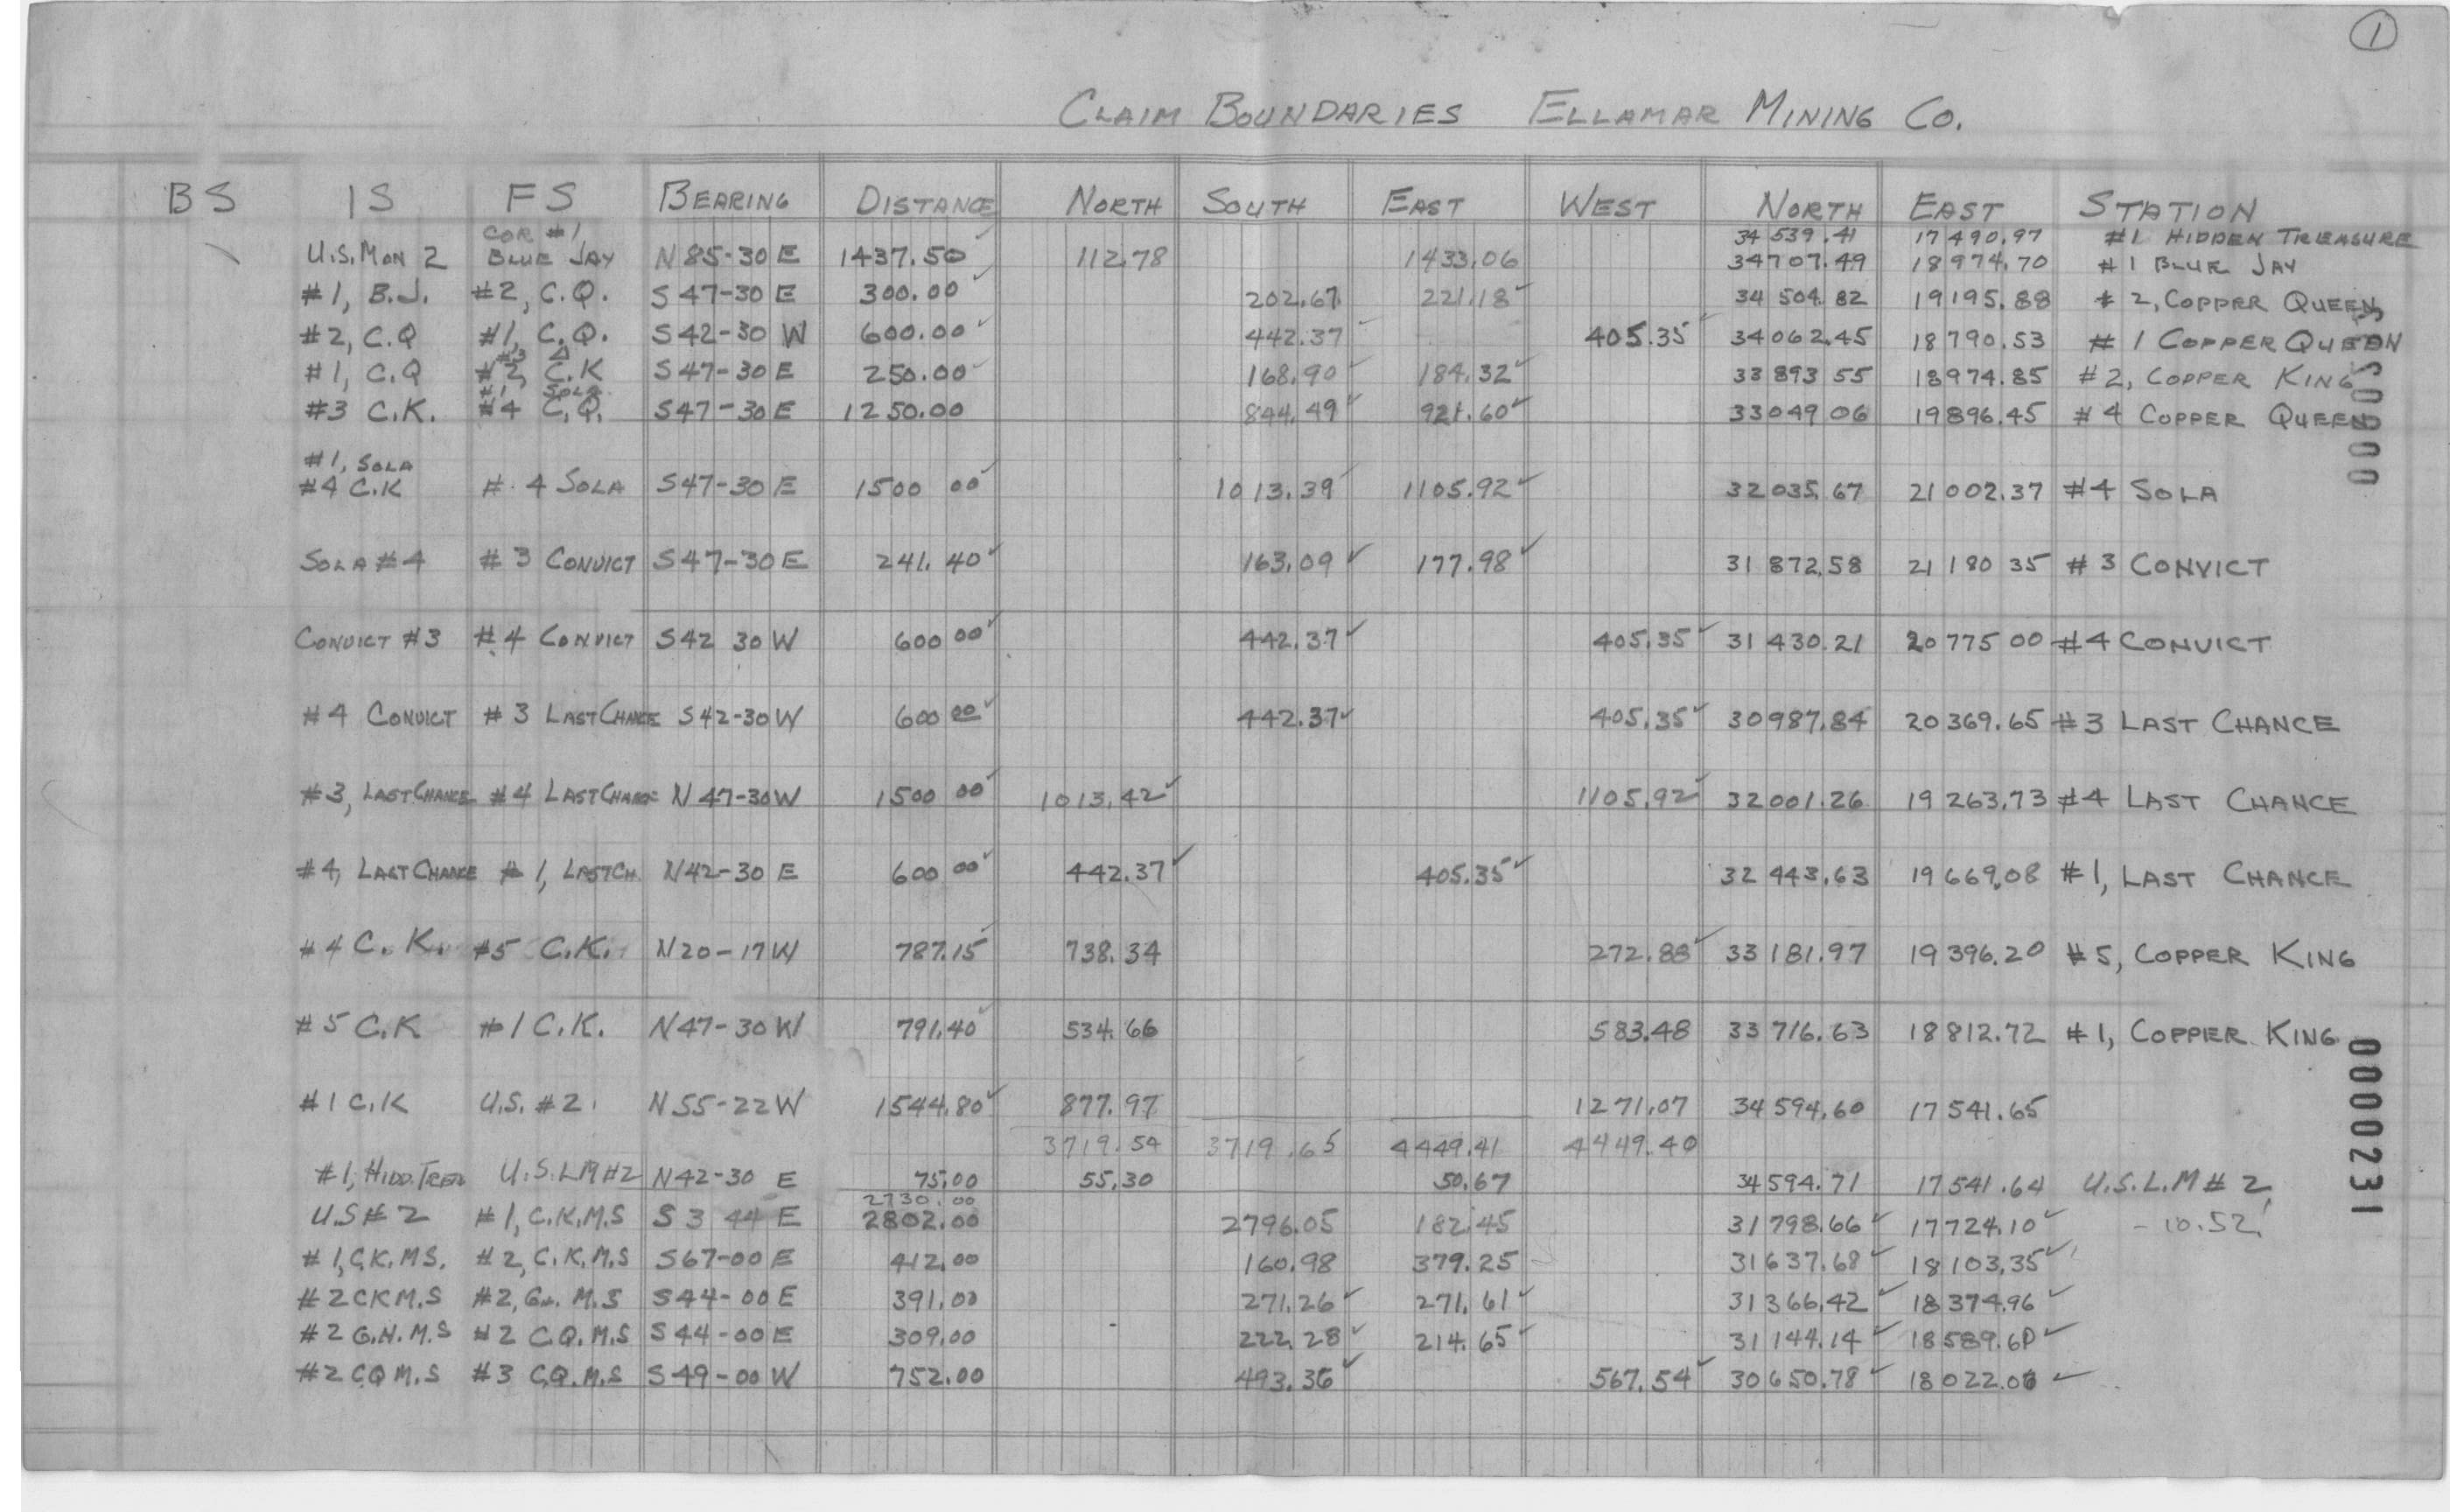 1
CLAIM BOUNDARIES ELLAMAR MINING CO.
BS IS FS BEARING DISTANCE NORTH SOUTH EAST WEST NORTH EAST STATION
COR #1 34 539.41 17 490.97 #1 HIDDEN TREASURE
U.S. MON 2 BLUE JAY N 85-30 E 1437.50 112.78 1433.06 34707.49 18974.70 #1 BLUE JAY
#1, B.J. #2, C.Q. S 47-30 E 300.00 202.67 221.18 34 504.82 19195.88 #2, COPPER QUEEN
#2, C.Q #1, C.Q. S 42-30 W 600.00 442.37 405.35 34062.45 18790.53 #1 COPPER QUEEN
#3 Δ
#1, C.Q #2, C.K S 47-30 E 250.00 168.90 184.32 33893 55 18974.85 #2, COPPER KING
#1 SOLA
#3 C.K. #4 C.Q. S 47-30 E 1250.00 844.49 921.60 33049 06 19896.45 #4 COPPER QUEEN
#1, SOLA
#4 C.K #4 SOLA S 47-30 E 1500 00 1013.39 1105.92 32035.67 21002.37 #4 SOLA
SOLA #4 #3 CONVICT S 47-30 E 241.40 163.09 177.98 31 872.58 21180 35 #3 CONVICT
CONVICT #3 #4 CONVICT S 42 30 W 600 00 442.37 405.35 31 430.21 20775 00 #4 CONVICT
#4 CONVICT #3 LAST CHANCE S 42-30 W 600 00 442.37 405.35 30987.84 20369.65 #3 LAST CHANCE
#3, LAST CHANCE #4 LAST CHANCE N 47-30 W 1500 00 1013.42 1105.92 32001.26 19263.73 #4 LAST CHANCE
#4, LAST CHANCE #1, LAST CH. N 42-30 E 600 00 442.37 405.35 32 443.63 19669.08 #1, LAST CHANCE
#4 C. K. #5 C.K. N 20-17 W 787.15 738.34 272.88 33 181.97 19396.20 #5, COPPER KING
#5 C.K #1 C.K. N 47-30 W 791.40 534.66 583.48 33 716.63 18812.72 #1, COPPER KING
000231
#1 C.K U.S. #2 N 55-22 W 1544.80 877.97 1271.07 34 594.60 17541.65
3719.54 3719.65 4449.41 4449.40
#1, HIDD. TREA U.S.L.M #2 N 42-30 E 75.00 55.30 50.67 34594.71 17541.64 U.S.L.M #2
2730.00
U.S # 2 #1, C.K.M.S S 3 44 E 2802.00 2796.05 182.45 31798.66 17724.10 -10.52
#1, C.K. M.S. #2, C.K. M.S S 67-00 E 412.00 160.98 379.25 31637.68 18103.35
#2 C K M.S #2, G.H. M.S S 44-00 E 391.00 271.26 271.61 31366.42 18374.96
#2 G.H. M.S #2 C.Q. M.S S 44-00 E 309.00 222.28 214.65 31144.14 18589.60
#2 C Q M.S #3 C.Q. M.S S 49-00 W 752.00 493.36 567.54 30650.78 18022.06